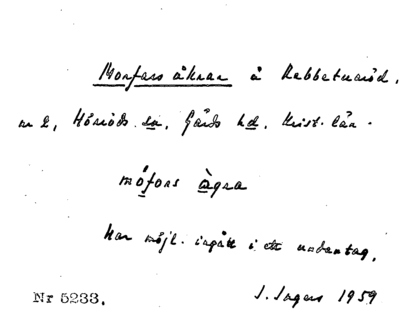 Morfars åkrar å Rebbetuaröd,
nr 2, Hörröds sn, Gärds hd, Krist. län.
mófors àgra
Kan möjl. ingått i ett undantag.
Nr 5233. I. Ingers 1959